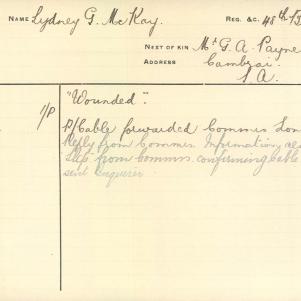 NAME Lydney G. McKay. REG. &C. 48th B
NEXT OF KIN Mr G. A. Payne
ADDRESS Cambrai.
S A.
"Wounded".
1/P P/Cable forwarded Commrs Lon
Reply from Commrs. Information re
Slip from Commrs. confirming cable
sent Enquirer.